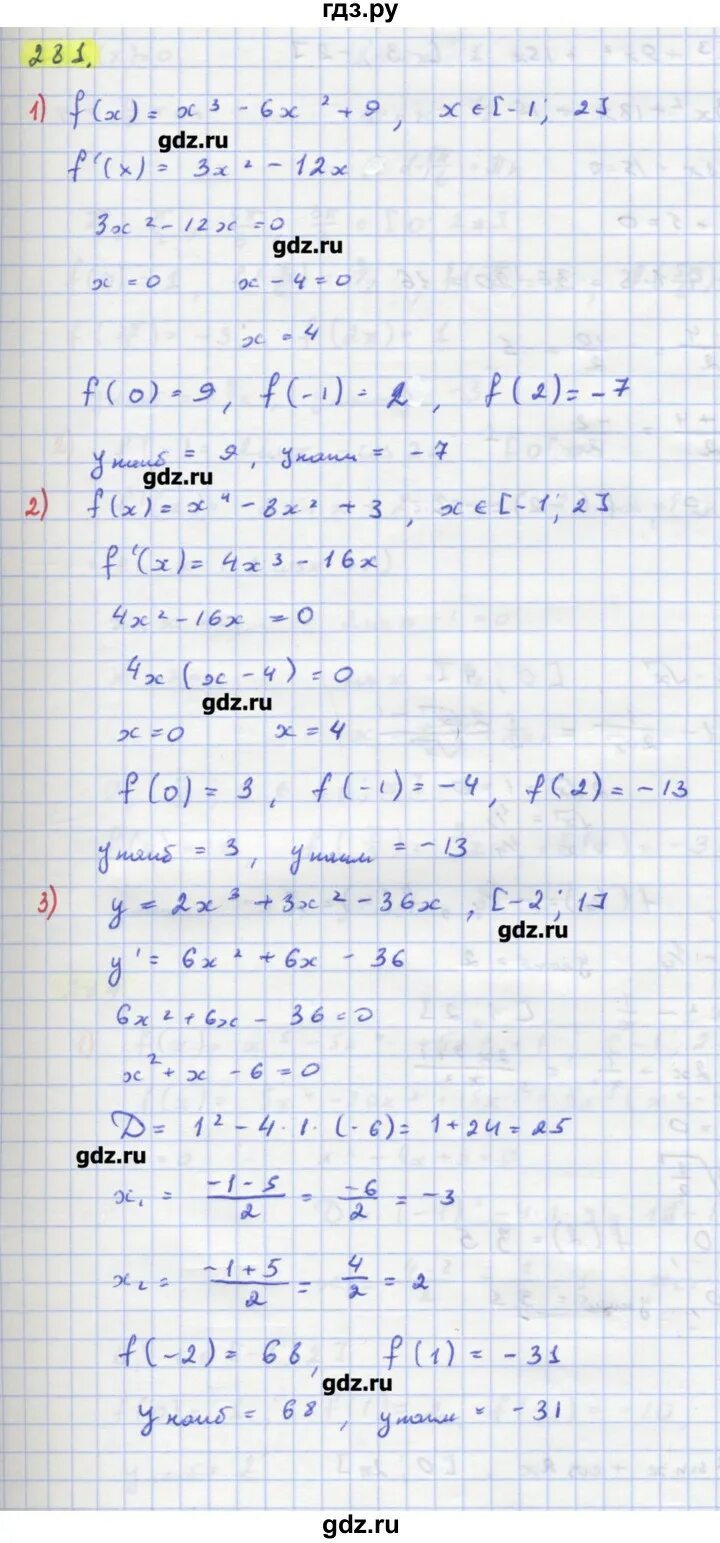 гдз.ру
281.
1) f(x) = x³ - 6x² + 9, x ∈ [-1; 2]
gdz.ru
f'(x) = 3x² - 12x
3x² - 12x = 0
gdz.ru
x = 0 x - 4 = 0
x = 4
f(0) = 9, f(-1) = 2, f(2) = -7
yнаиб = 9, yнаим = -7
gdz.ru
2) f(x) = x⁴ - 8x² + 3, x ∈ [-1; 2]
f'(x) = 4x³ - 16x
4x² - 16x = 0
4x(x - 4) = 0
gdz.ru
x = 0 x = 4
f(0) = 3, f(-1) = -4, f(2) = -13
yнаиб = 3, yнаим = -13
3) y = 2x³ + 3x² - 36x, [-2; 1]
gdz.ru
y' = 6x² + 6x - 36
6x² + 6x - 36 = 0
x² + x - 6 = 0
D = 1² - 4 · 1 · (-6) = 1 + 24 = 25
gdz.ru
x₁ = (-1-5)/2 = -6/2 = -3
x₂ = (-1+5)/2 = 4/2 = 2
f(-2) = 68, f(1) = -31
gdz.ru
yнаиб = 68, yнаим = -31
gdz.ru